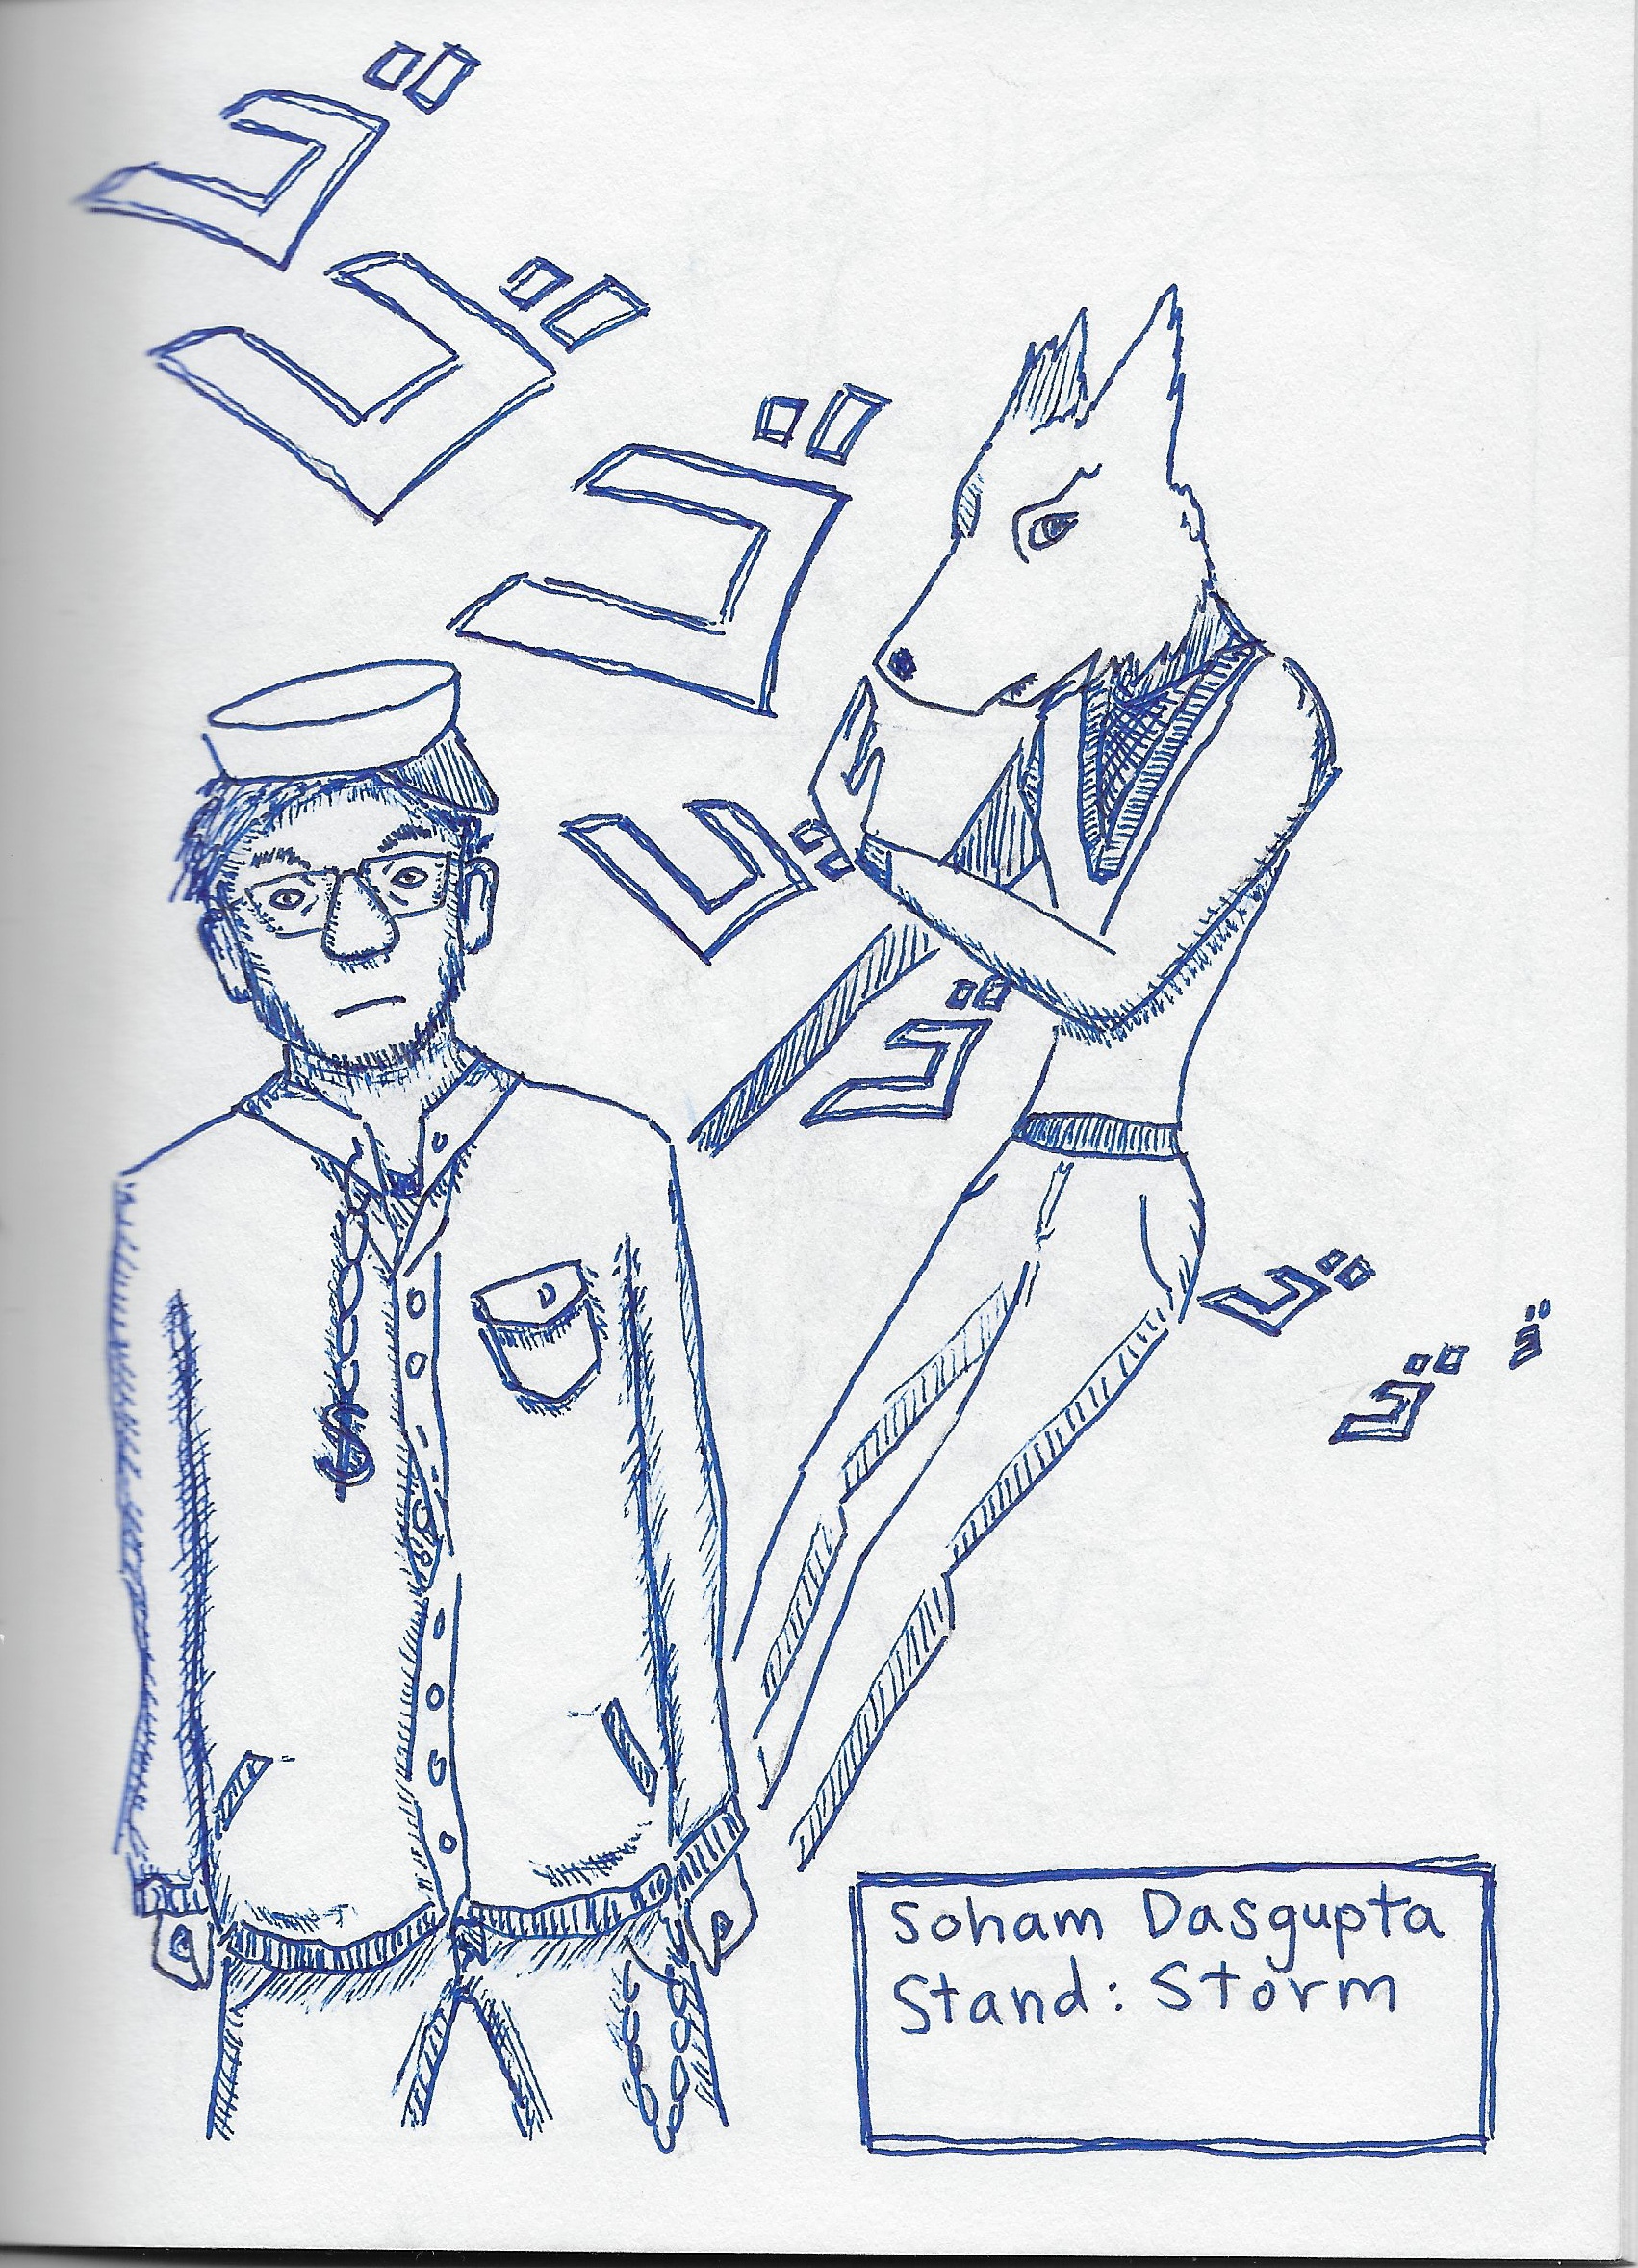 ゴゴゴゴゴゴゴゴ
$
Soham Dasgupta
Stand: Storm